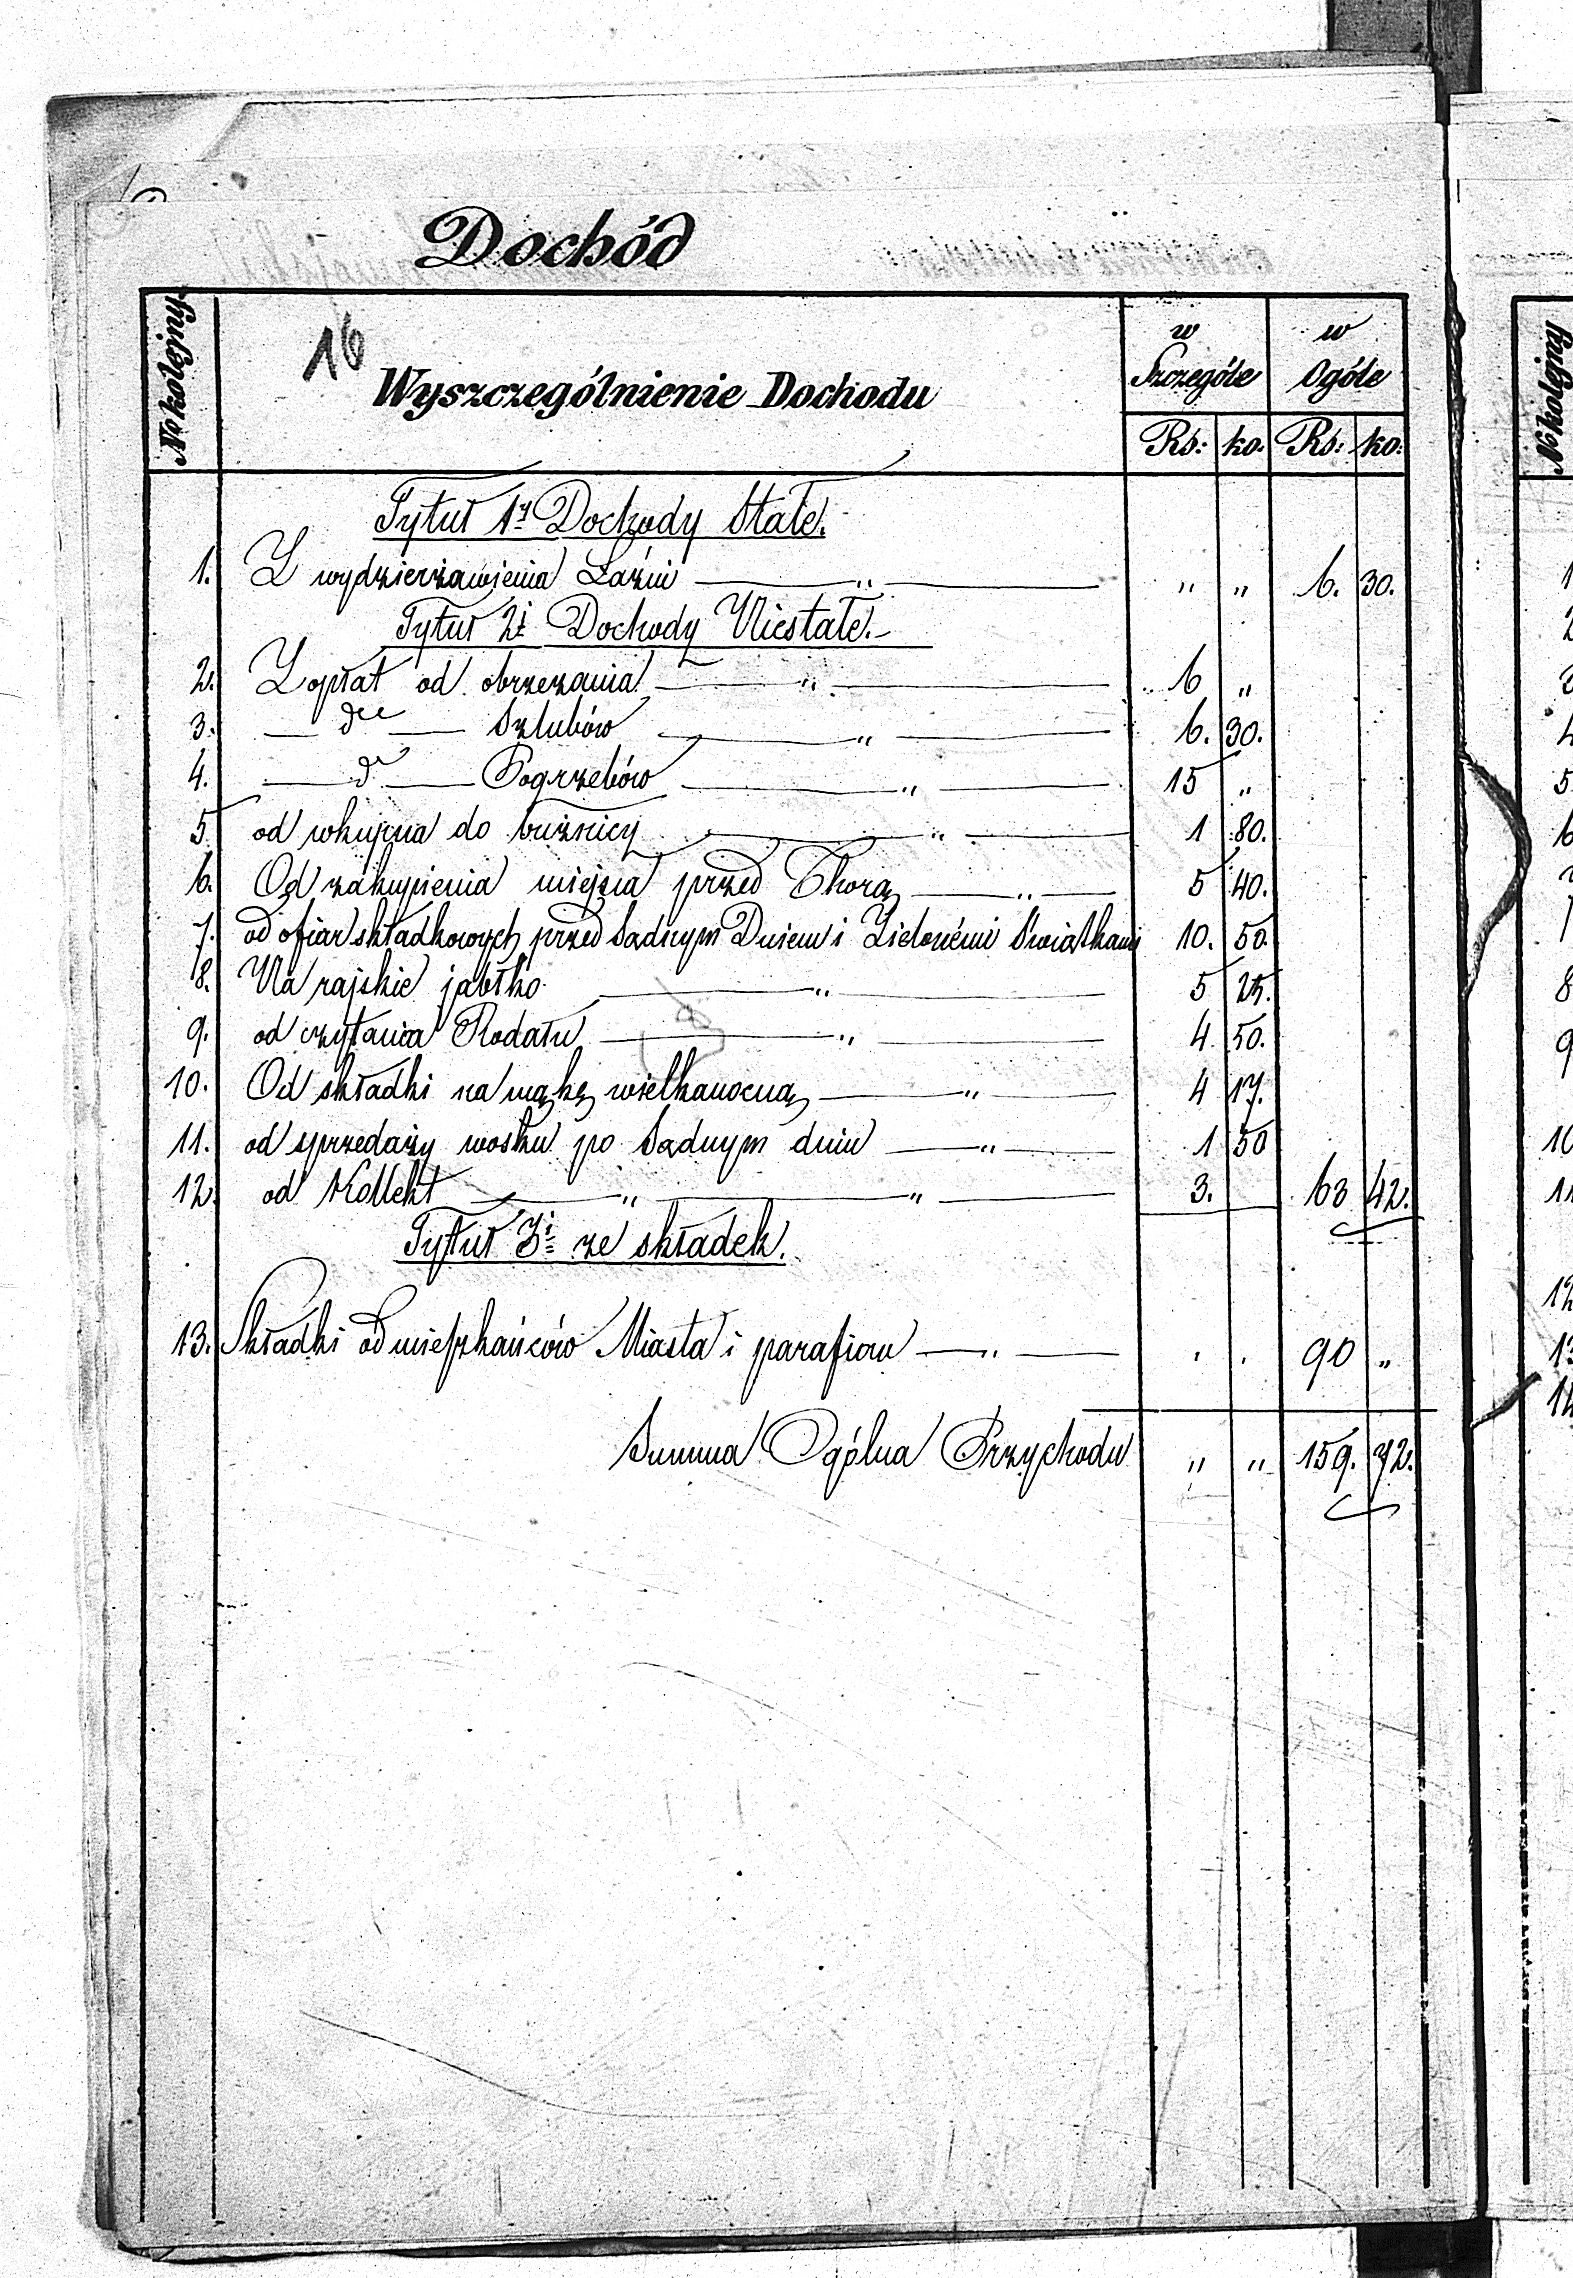 Dochód
No kolejny
16
Wyszczególnienie Dochodu
w Szczególe
w Ogóle
Rs: ko. Rs: ko:
Tytuł 1y Dochody Stałe.
1. Z wydzierżawienia Łaźni — „ — „ „ 6. 30.
Tytuł 2i Dochody Niestałe.
2. Z opłat od obrzezania — „ — 6 „
3. — dto — Szlubów — „ — 6. 30.
4. — dto — Pogrzebów — „ — 15 „
5 od wkupna do bużnicy — „ — 1 80.
6. Od zakupienia miejsca przed Thorą — „ — 5 40.
7. od ofiar składkowych przed Sądnym Dniem i Zielonémi Swiątkami 10. 50.
8. Na rajskie jabłko — „ — 5 25.
9. od czytania Rodału — „ — 4 50.
10. Od składki na mąkę wielkanocną — „ — 4 17.
11. od sprzedaży wosku po Sądnym dniu — „ — 1 50
12. od Kollekt — „ — „ — 3. 63 42.
Tytuł 3i ze składek.
13. Składki od mieszkańców Miasta i parafian — „ — . . 90 „
Summa Ogólna Przychodu „ „ 159. 72.
No kolejny
1
2
3
4
5
6
7
8
9
10
11
12
13
14